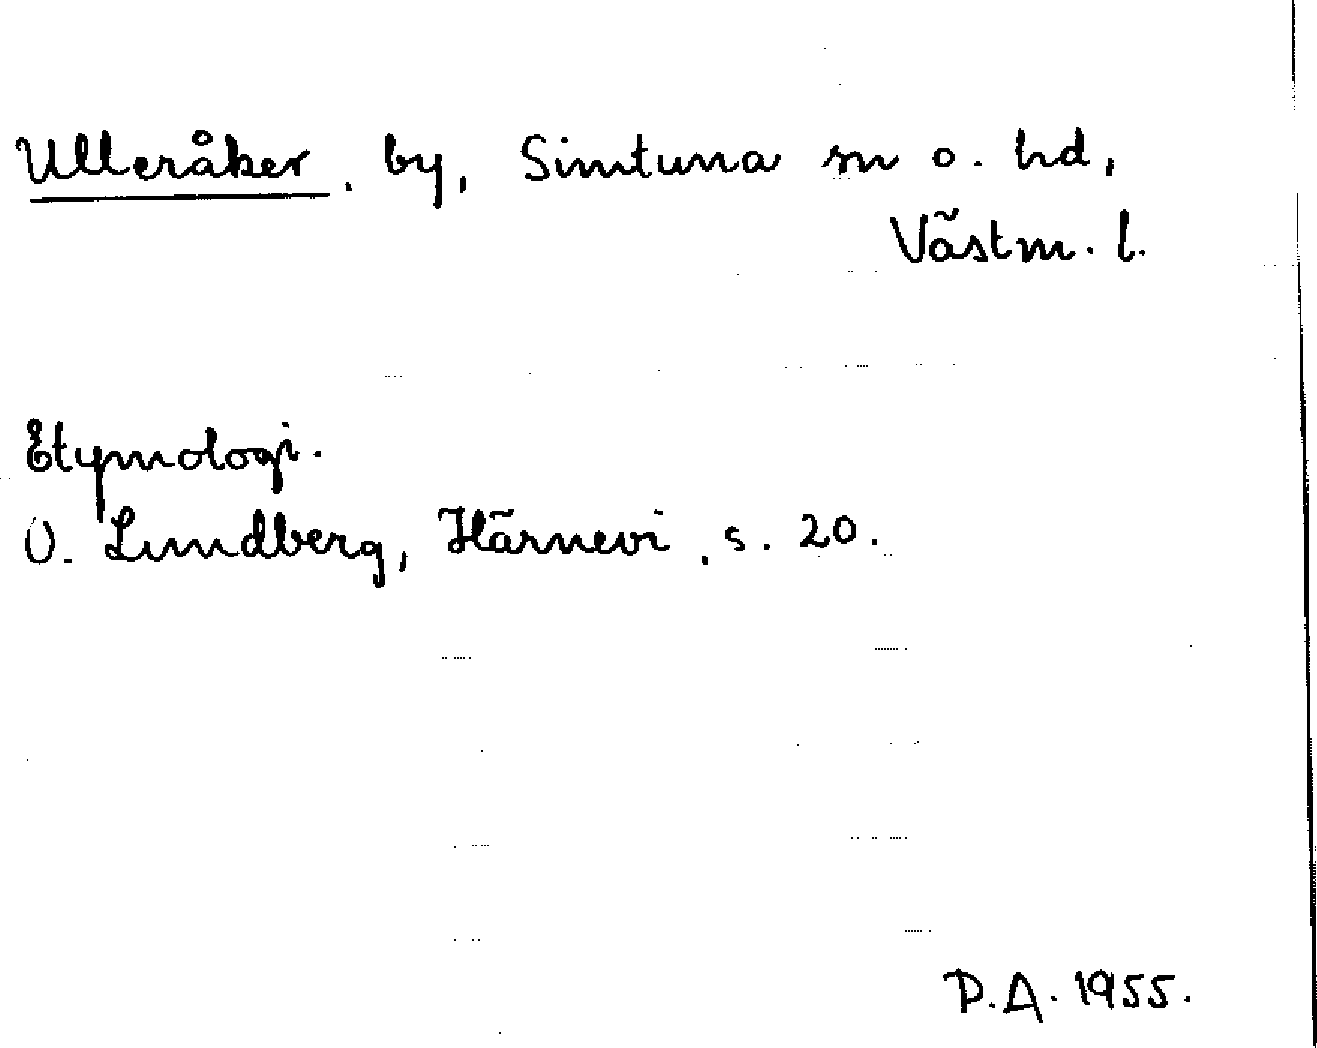 Ulleråker, by, Simtuna sn o. hd,
Västm. l.
Etymologi.
O. Lundberg, Härnevi, s. 20.
P.A. 1955.